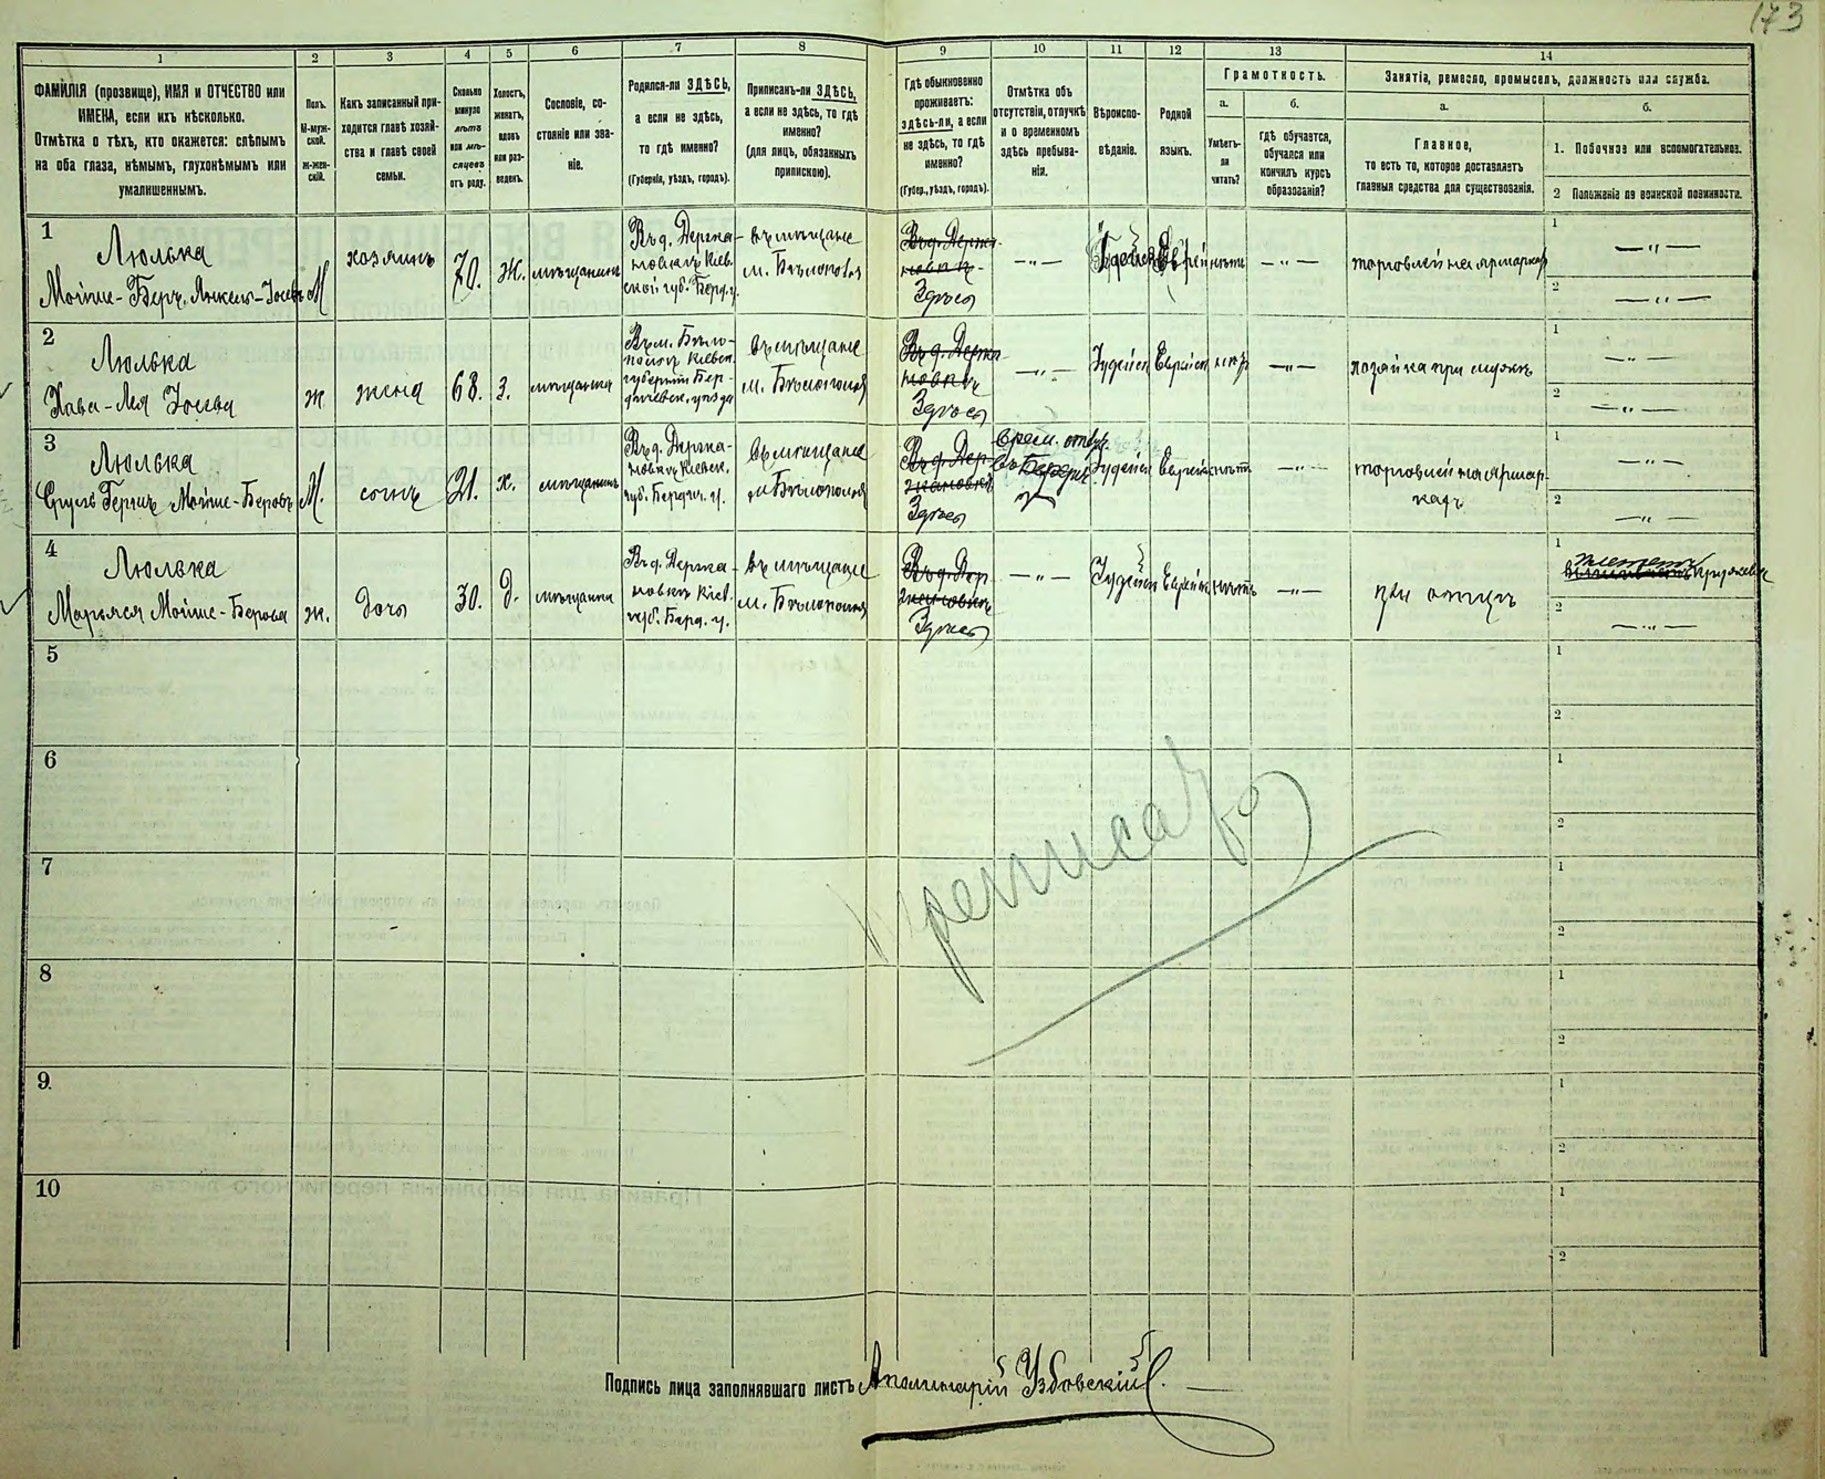 173
1 2 3 4 5 6 7 8 9 10 11 12 13 14
ФАМИЛІЯ (прозвище), ИМЯ и ОТЧЕСТВО или
ИМЕНА, если ихъ нѣсколько.
Отмѣтка о тѣхъ, кто окажется: слѣпымъ
на оба глаза, нѣмымъ, глухонѣмымъ или
умалишеннымъ.
Полъ.
М-муж-
ской.
Ж-жен-
скій.
Какъ записанный при-
ходится главѣ хозяй-
ства и главѣ своей
семьи.
Сколько
минуло
лѣтъ
или мѣ-
сяцевъ
отъ роду.
Холостъ,
женатъ,
вдовъ
или раз-
веденъ.
Сословіе, со-
стояніе или зва-
ніе.
Родился-ли ЗДѢСЬ,
а если не здѣсь,
то гдѣ именно?
(Губернія, уѣздъ, городъ).
Приписанъ-ли ЗДѢСЬ,
а если не здѣсь, то гдѣ
именно?
(для лицъ, обязанныхъ
припискою).
Гдѣ обыкновенно
проживаетъ:
здѣсь-ли, а если
не здѣсь, то гдѣ
именно?
(Губер., уѣздъ, городъ).
Отмѣтка объ
отсутствіи, отлучкѣ
и о временномъ
здѣсь пребыва-
ніи.
Вѣроиспо-
вѣданіе.
Родной
языкъ.
Грамотность.
а.
Умѣетъ-
ли
читать?
б.
гдѣ обучается,
обучался или
кончилъ курсъ
образованія?
Занятіе, ремесло, промыселъ, должность или служба.
а.
Главное,
то есть то, которое доставляетъ
главныя средства для существованія.
б.
1. Побочное или вспомогательное.
2 Положеніе по воинской повинности.
1
Люлька
Мойше-Беръ Янкель-Іосевъ
М
хозяинъ
70.
Ж.
мѣщанинъ
Въ д. Держа-
новкѣ Кіев-
ской губ. Берд. у.
въ мѣщане
м. Бѣлополья
Въ д. Держа-
новкѣ
Здѣсь
— " —
Еврей
нѣтъ
— " —
торговлей на ярмаркахъ
1 — " —
2 — " —
2
Люлька
Хава-Лея Іосева
ж
жена
68.
З.
мѣщанка
Въ м. Бѣло-
польѣ Кіевск.
губерніи Бер-
дичевск. уѣзда
въ мѣщане
м. Бѣлополья
Въ д. Держа-
новкѣ
Здѣсь
— " —
Іудейск
Еврейск
нѣтъ
— " —
хозяйка при мужѣ
1 — " —
2 — " —
3
Люлька
Сруль Гершъ Мойше-Беровъ
М.
сынъ
21.
х.
мѣщанинъ
Въ д. Держа-
новкѣ Кіевск.
губ. Бердич. у.
въ мѣщане
м. Бѣлополья
Въ д. Дер-
жановкѣ
Здѣсь
Іудейск
Еврейск
нѣтъ
— " —
торговлей на ярмар-
кахъ
1 — " —
2 — " —
4
Люлька
Марьяся Мойше-Берова
ж.
дочь
30.
д.
мѣщанка
Въ д. Держа-
новкѣ Кіев.
губ. Берд. у.
въ мѣщане
м. Бѣлополья
Въ д. Дер-
жановкѣ
Здѣсь
— " —
Іудейск
Еврейск
нѣтъ
— " —
при отцѣ
1
2 — " —
5 1
2
6 1
2
7 1
2
8 1
2
9 1
2
10 1
2
Подпись лица заполнявшаго листъ